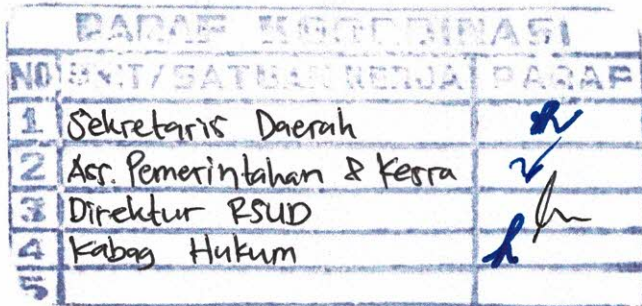 PARAF KOORDINASI
NO UNIT/SATUAN KERJA PARAF
1 Sekretaris Daerah
2 Ass. Pemerintahan & Kesra
3 Direktur RSUD
4 Kabag Hukum
5